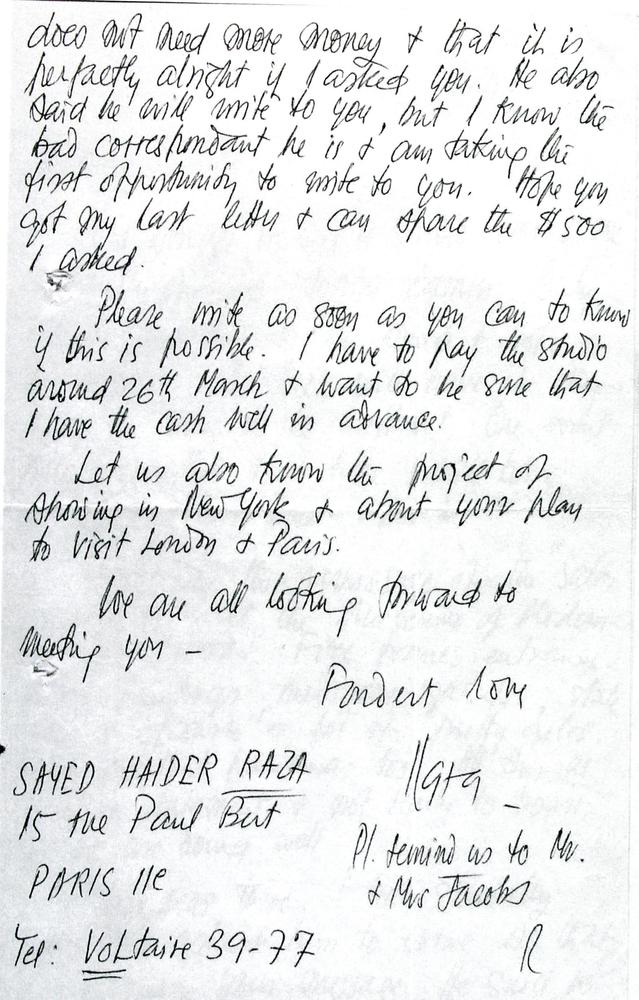 does not need more money & that it is
perfectly alright if I asked you. He also
said he will write to you, but I know the
bad correspondant he is & am taking the
first opportunity to write to you. Hope you
got my last letter & can spare the $500
I asked.
Please write as soon as you can to know
if this is possible. I have to pay the studio
around 26th March & want to be sure that
I have the cash well in advance.
Let us also know the project of
showing in New York & about your plan
to visit London & Paris.
We are all looking forward to
meeting you —
Fondest love
SAYED HAIDER RAZA
15 rue Paul Bert
Pl. remind us to Mr.
& Mrs Jacobs
PARIS 11e
R
Tel: VOLtaire 39-77